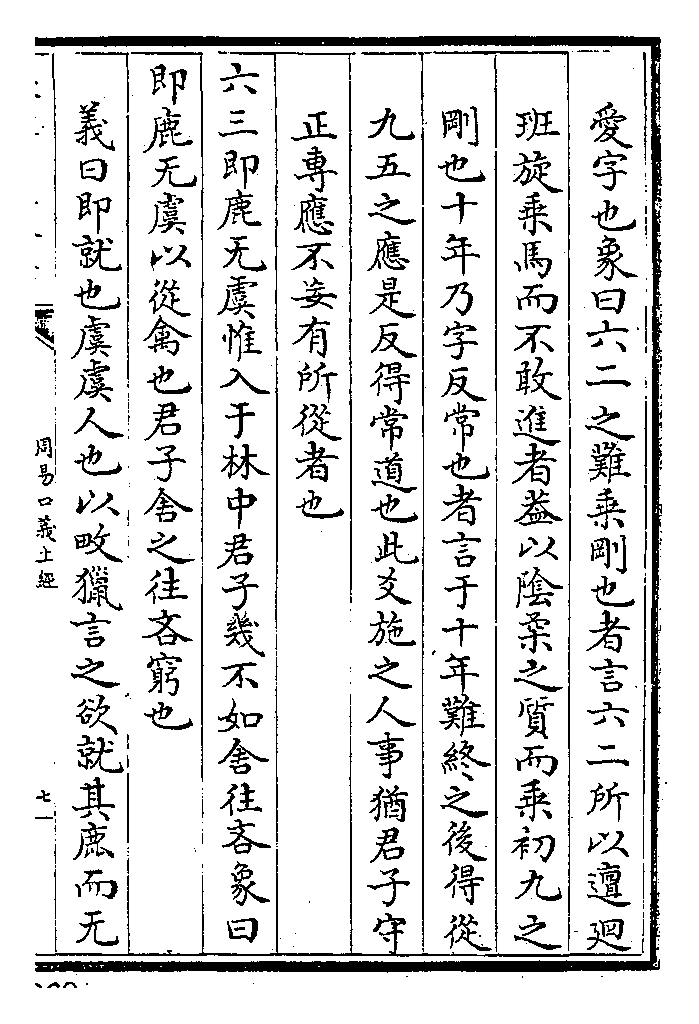 愛字也象曰六二之難乗剛也者言六二所以邅廻
班旋乗馬而不敢進者葢以陰柔之質而乗初九之
剛也十年乃字反常也者言于十年難終之後得從
九五之應是反得常道也此爻施之人事猶君子守
正專應不妄有所從者也
六三即鹿无虞惟入于林中君子幾不如舍往吝象曰
即鹿无虞以從禽也君子舍之往吝窮也
義曰即就也虞虞人也以畋獵言之欲就其鹿而无
周易口義上經
七一